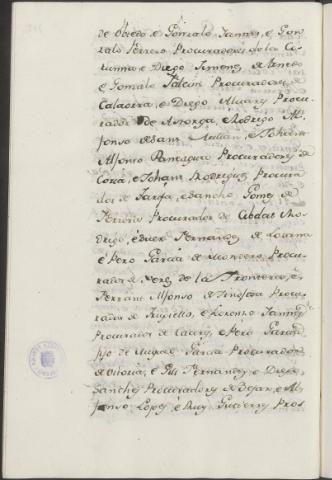 de Obiedo e Gonzalo Iannes, e Gon
zalo Perrero Procuradores de la Co
e Diego Ximenez de
e Gomalo Falcon Procuradores de
Calaorra, e Diego Aluarez Procu
rador de Astorga, e Rodrigo Al
fonso de San Iulian, e Iohan
Alfonso Procuradores de
Coria, e Iohan Rodriguez Procura
dor de Tarifa, e Sancho Gomez de
Procurador de Cibdat Ro
drigo, e Fernandez de
e Pero Garcia de Procu
radores de Xerez de la Frontera, e
Ferrant Alfonso de Procu
rador de Trujillo, e Lorenzo Iannes
Procurador de Cacerez, e Pero Garcia
fijo de Garcia Procurador
de Vitoria, e Fernandez e Diego
Sanchez Procuradores de Bejar, e Al
fonso Lopez, e Ruy Gutierrez Pros